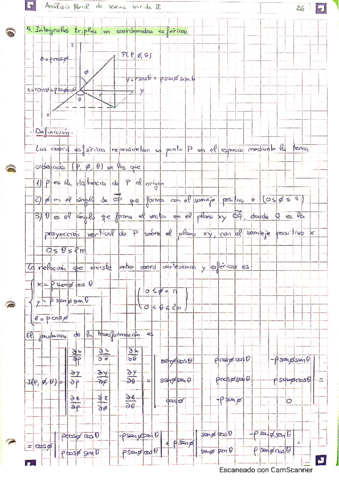 Análisis Real de varias variables II
26
4. Integrales triples en coordenadas esféricas
z
P(ρ, ϕ, θ)
z = ρcosϕ
ϕ
y = r senθ = ρ senϕ senθ
x = r cosθ = ρ senϕ cosθ
y
θ
x
· Definición:
Las coord esféricas representan un punto P en el espacio mediante la terna
ordenada (ρ, ϕ, θ) en las que
1) ρ es la distancia de P al origen
2) ϕ es el ángulo de OP que forma con el semieje positivo z (0 ≤ ϕ ≤ π)
3) θ es el ángulo que forma el vector en el plano xy OQ, donde Q es la
proyección vertical de P sobre el plano xy, con el semieje positivo x
0 ≤ θ ≤ 2π
La relación que existe entre coord cartesianas y esféricas es
x = ρ senϕ cosθ
y = ρ senϕ senθ
z = ρ cosϕ
(0 ≤ ϕ < π
0 < θ ≤ 2π)
El jacobiano de la transformación es
J(θ, ϕ, θ) = | ∂x/∂ρ ∂x/∂ϕ ∂x/∂θ | = | senϕcosθ ρcosϕcosθ -ρsenϕsenθ | =
| ∂y/∂ρ ∂y/∂ϕ ∂y/∂θ | | senϕsenθ ρcosϕsenθ ρsenϕcosθ |
| ∂z/∂ρ ∂z/∂ϕ ∂z/∂θ | | cosϕ -ρsenϕ 0 |
= cosϕ | ρcosϕ cosθ -ρsenϕ senθ | + ρsenϕ | senϕ cosθ -ρ senϕ senθ | =
| ρcosϕ senθ ρsenϕ cosθ | | senϕ senθ ρ senϕ cosθ |
Escaneado con CamScanner